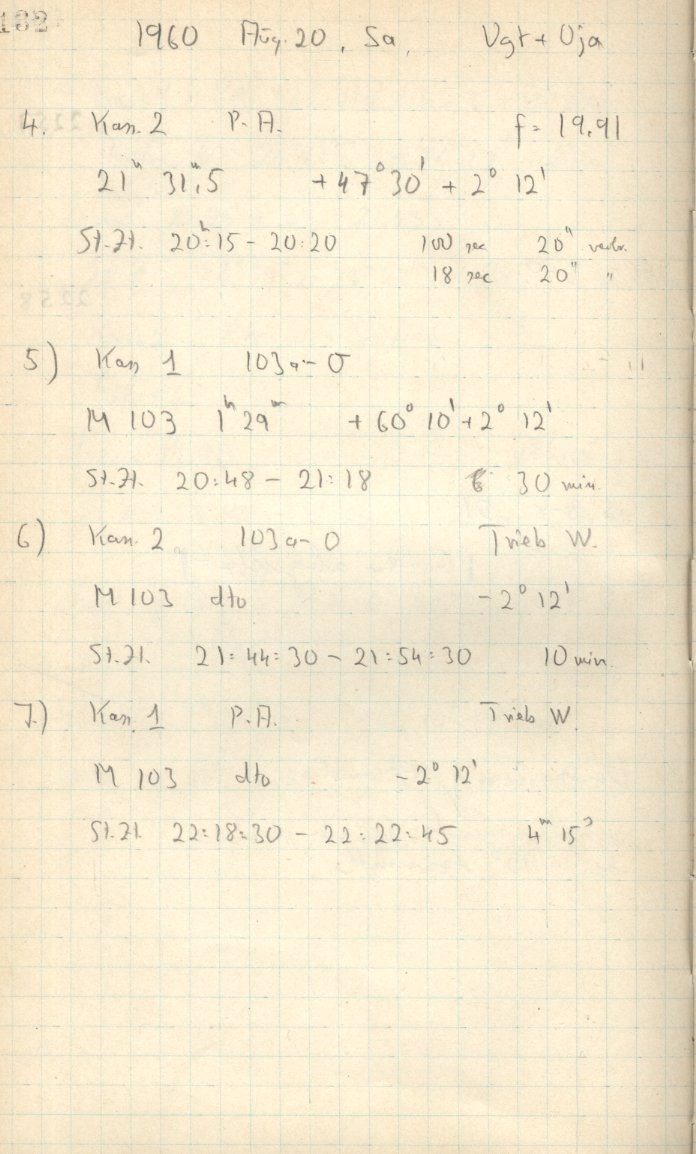 182
1960 Aug. 20, Sa, Vgt + Oja
4. Kas. 2 P.A. f = 19.91
21ʰ 31ᵐ,5 +47° 30' + 2° 12'
St.Zt. 20ʰ:15 - 20:20 100 sec 20" verbr.
18 sec 20" "
5) Kas 1 103a-O
M 103 1ʰ 29ᵐ + 60° 10' + 2° 12'
St.Zt. 20:48 - 21:18 30 min.
6) Kas. 2 103a-O Trieb W.
M 103 dto - 2° 12'
St.Zt. 21:44:30 - 21:54:30 10 min.
7.) Kas. 1 P.A. Trieb W.
M 103 dto - 2° 12'
St.Zt. 22:18:30 - 22:22:45 4ᵐ 15ˢ